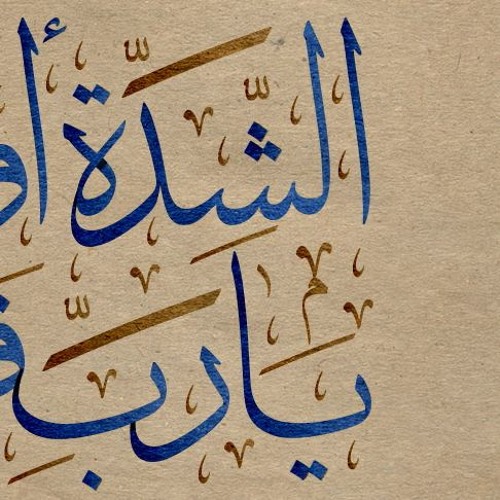 الشَّدَّةُ أو
يَا رَبَّ